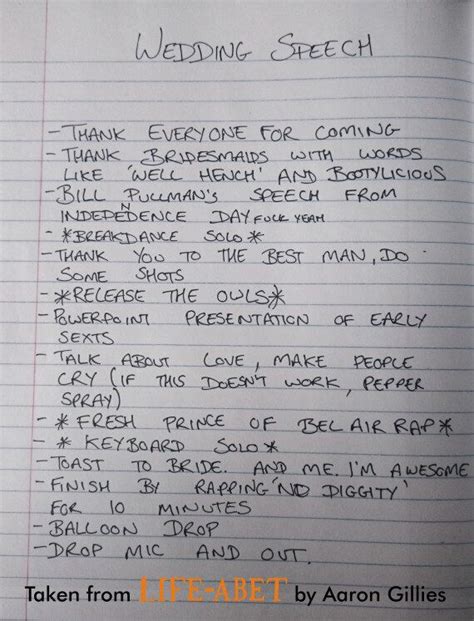 WEDDING SPEECH
- THANK EVERYONE FOR COMING
- THANK BRIDESMAIDS WITH WORDS
LIKE 'WELL HENCH' AND BOOTYLICIOUS
- BILL PULLMAN'S SPEECH FROM
INDEPENDENCE DAY FUCK YEAH
- *BREAKDANCE SOLO*
- THANK YOU TO THE BEST MAN, DO
SOME SHOTS
- *RELEASE THE OWLS*
- POWERPOINT PRESENTATION OF EARLY
SEXTS
- TALK ABOUT LOVE, MAKE PEOPLE
CRY (IF THIS DOESN'T WORK, PEPPER
SPRAY)
- * FRESH PRINCE OF BEL AIR RAP*
- * KEYBOARD SOLO*
- TOAST TO BRIDE. AND ME. I'M AWESOME
- FINISH BY RAPPING 'NO DIGGITY'
FOR 10 MINUTES
- BALLOON DROP
- DROP MIC AND OUT.
Taken from LIFE-ABET by Aaron Gillies